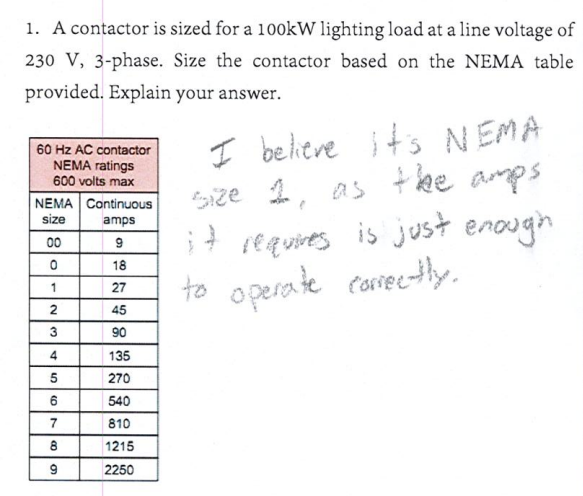 1. A contactor is sized for a 100kW lighting load at a line voltage of
230 V, 3-phase. Size the contactor based on the NEMA table
provided. Explain your answer.
60 Hz AC contactor
NEMA ratings
600 volts max
NEMA size Continuous amps
00 9
0 18
1 27
2 45
3 90
4 135
5 270
6 540
7 810
8 1215
9 2250
I believe it's NEMA
size 1, as the amps
it requires is just enough
to operate correctly.